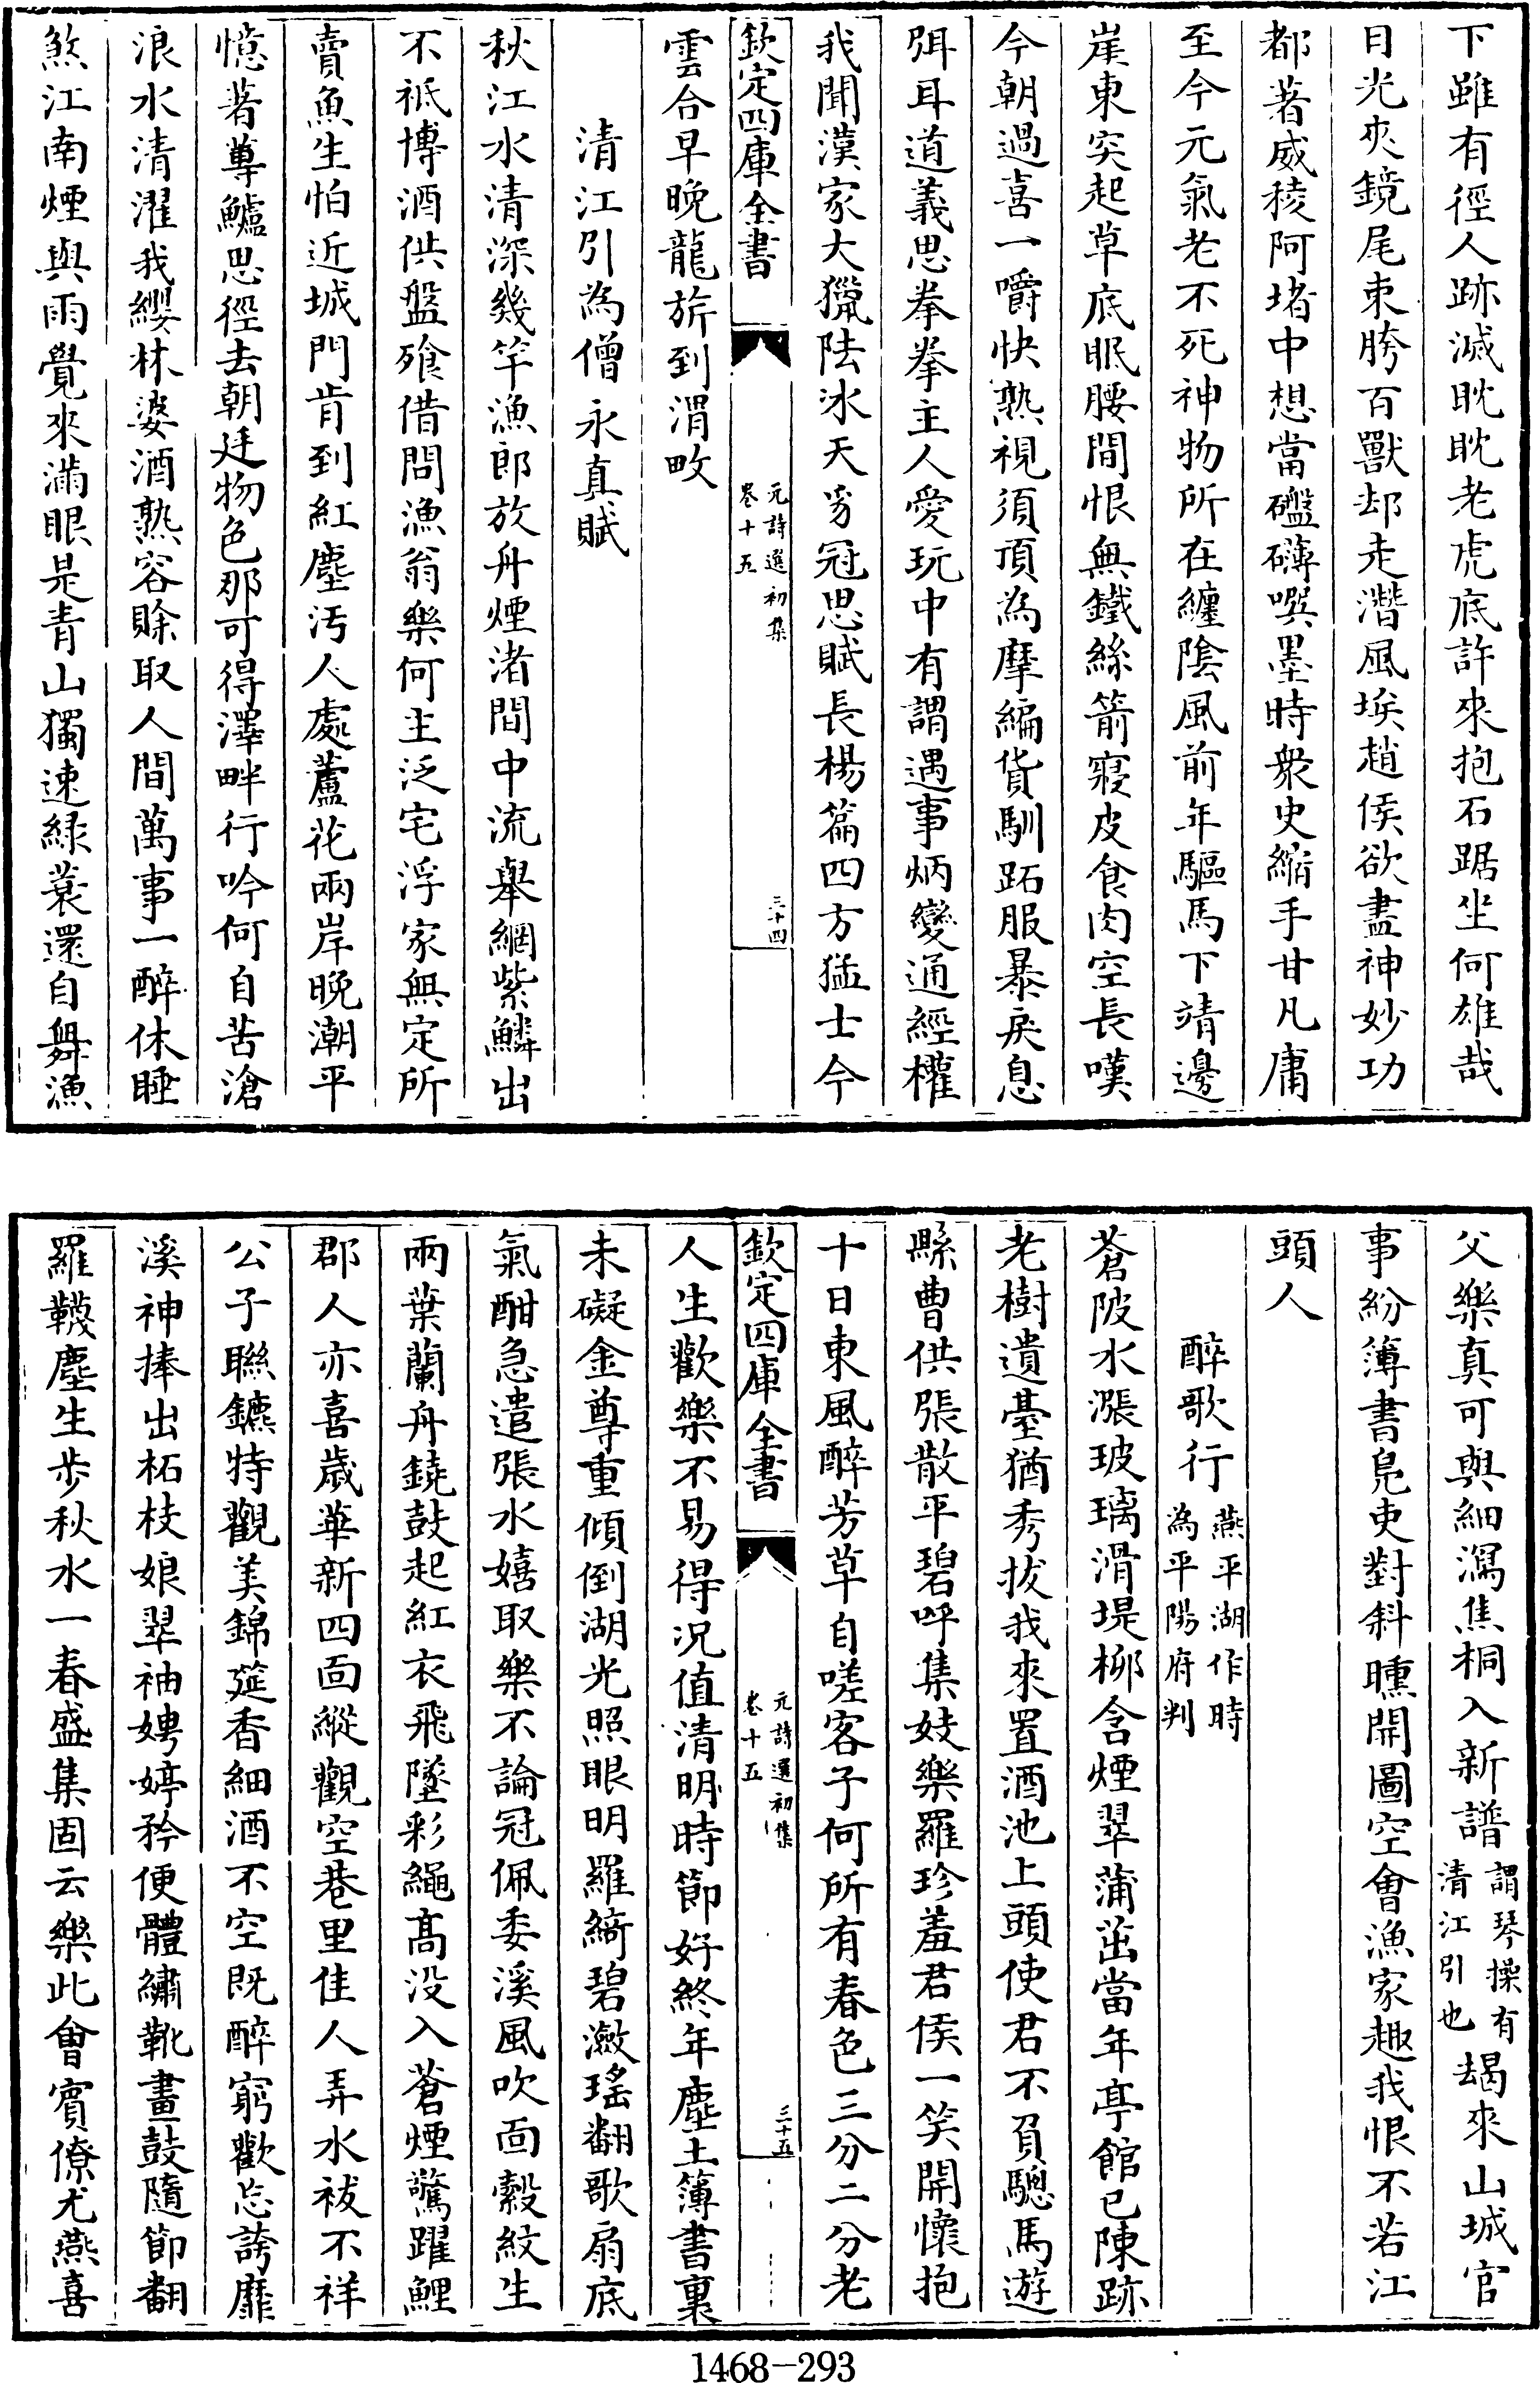 下雖有徑人跡滅眈眈老虎底許來抱石踞坐何雄哉
目光夾鏡尾束胯百獸却走潛風埃趙侯欲盡神妙功
都著威稜阿堵中想當礚礴噀墨時衆史縮手甘凡庸
至今元氣老不死神物所在纏陰風前年驅馬下靖邊
崖東突起草底眠腰間恨無鐵絲箭寢皮食肉空長嘆
今朝過喜一嚼快熟視須頂為摩編貨馴跖服暴戾息
弭耳道義思拳拳主人愛玩中有謂遇事炳變通經權
我聞漢家大獵陹冰天豸冠思賦長楊篇四方猛士今
欽定四庫全書
元詩選初集
卷十五
三十四
雲合早晚龍旂到渭畋
清江引為僧永真賦
秋江水清深幾竿漁郎放舟煙渚間中流舉網紫鱗出
不祗博酒供盤飱借問漁翁樂何主泛宅浮家無定所
賣魚生怕近城門肯到紅塵汚人處蘆花兩岸晚潮平
憶著蓴鱸思徑去朝廷物色那可得澤畔行吟何自苦滄
浪水清濯我纓林婆酒熟容賒取人間萬事一醉休睡
煞江南煙與雨覺來滿眼是青山獨速緑蓑還自舞漁
父樂真可與細瀉焦桐入新譜謂琴操有清江引也朅來山城官
事紛簿書鳧吏對斜曛開圖空會漁家趣我恨不若江
頭人
醉歌行燕平湖作時為平陽府判
蒼陂水漲玻璃滑堤柳含煙翠蒲茁當年亭館已陳跡
老樹遺臺猶秀拔我來置酒池上頭使君不負驄馬遊
縣曹供張散平碧呼集妓樂羅珍羞君侯一笑開懷抱
十日東風醉芳草自嗟客子何所有春色三分二分老
欽定四庫全書
元詩選初集
卷十五
三十五
人生歡樂不易得况值清明時節好終年塵土簿書裏
未礙金尊重傾倒湖光照眼明羅綺碧瀲瑤翻歌扇底
氣酣急遣張水嬉取樂不論冠佩委溪風吹面縠紋生
兩葉蘭舟鐃鼓起紅衣飛墜彩繩髙没入蒼煙驚躍鯉
郡人亦喜歲華新四面縱觀空巷里佳人弄水袚不祥
公子聮鑣特觀美錦筵香細酒不空既醉窮歡忘誇靡
溪神捧出柘枝娘翠袖娉婷矜便體繡靴畫鼓隨節翻
羅韈塵生歩秋水一春盛集固云樂此會賓僚尤燕喜
1468-293